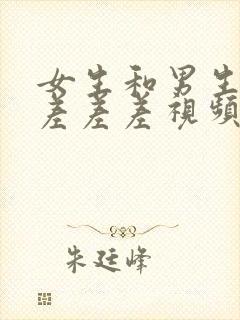 女生和男生
差差差視頻
朱廷峰